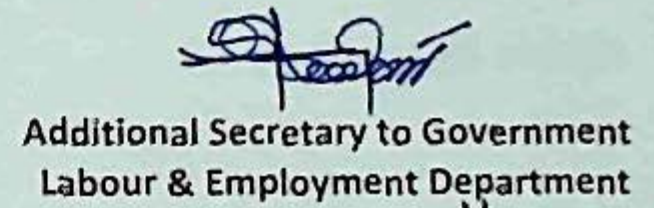 Additional Secretary to Government
Labour & Employment Department